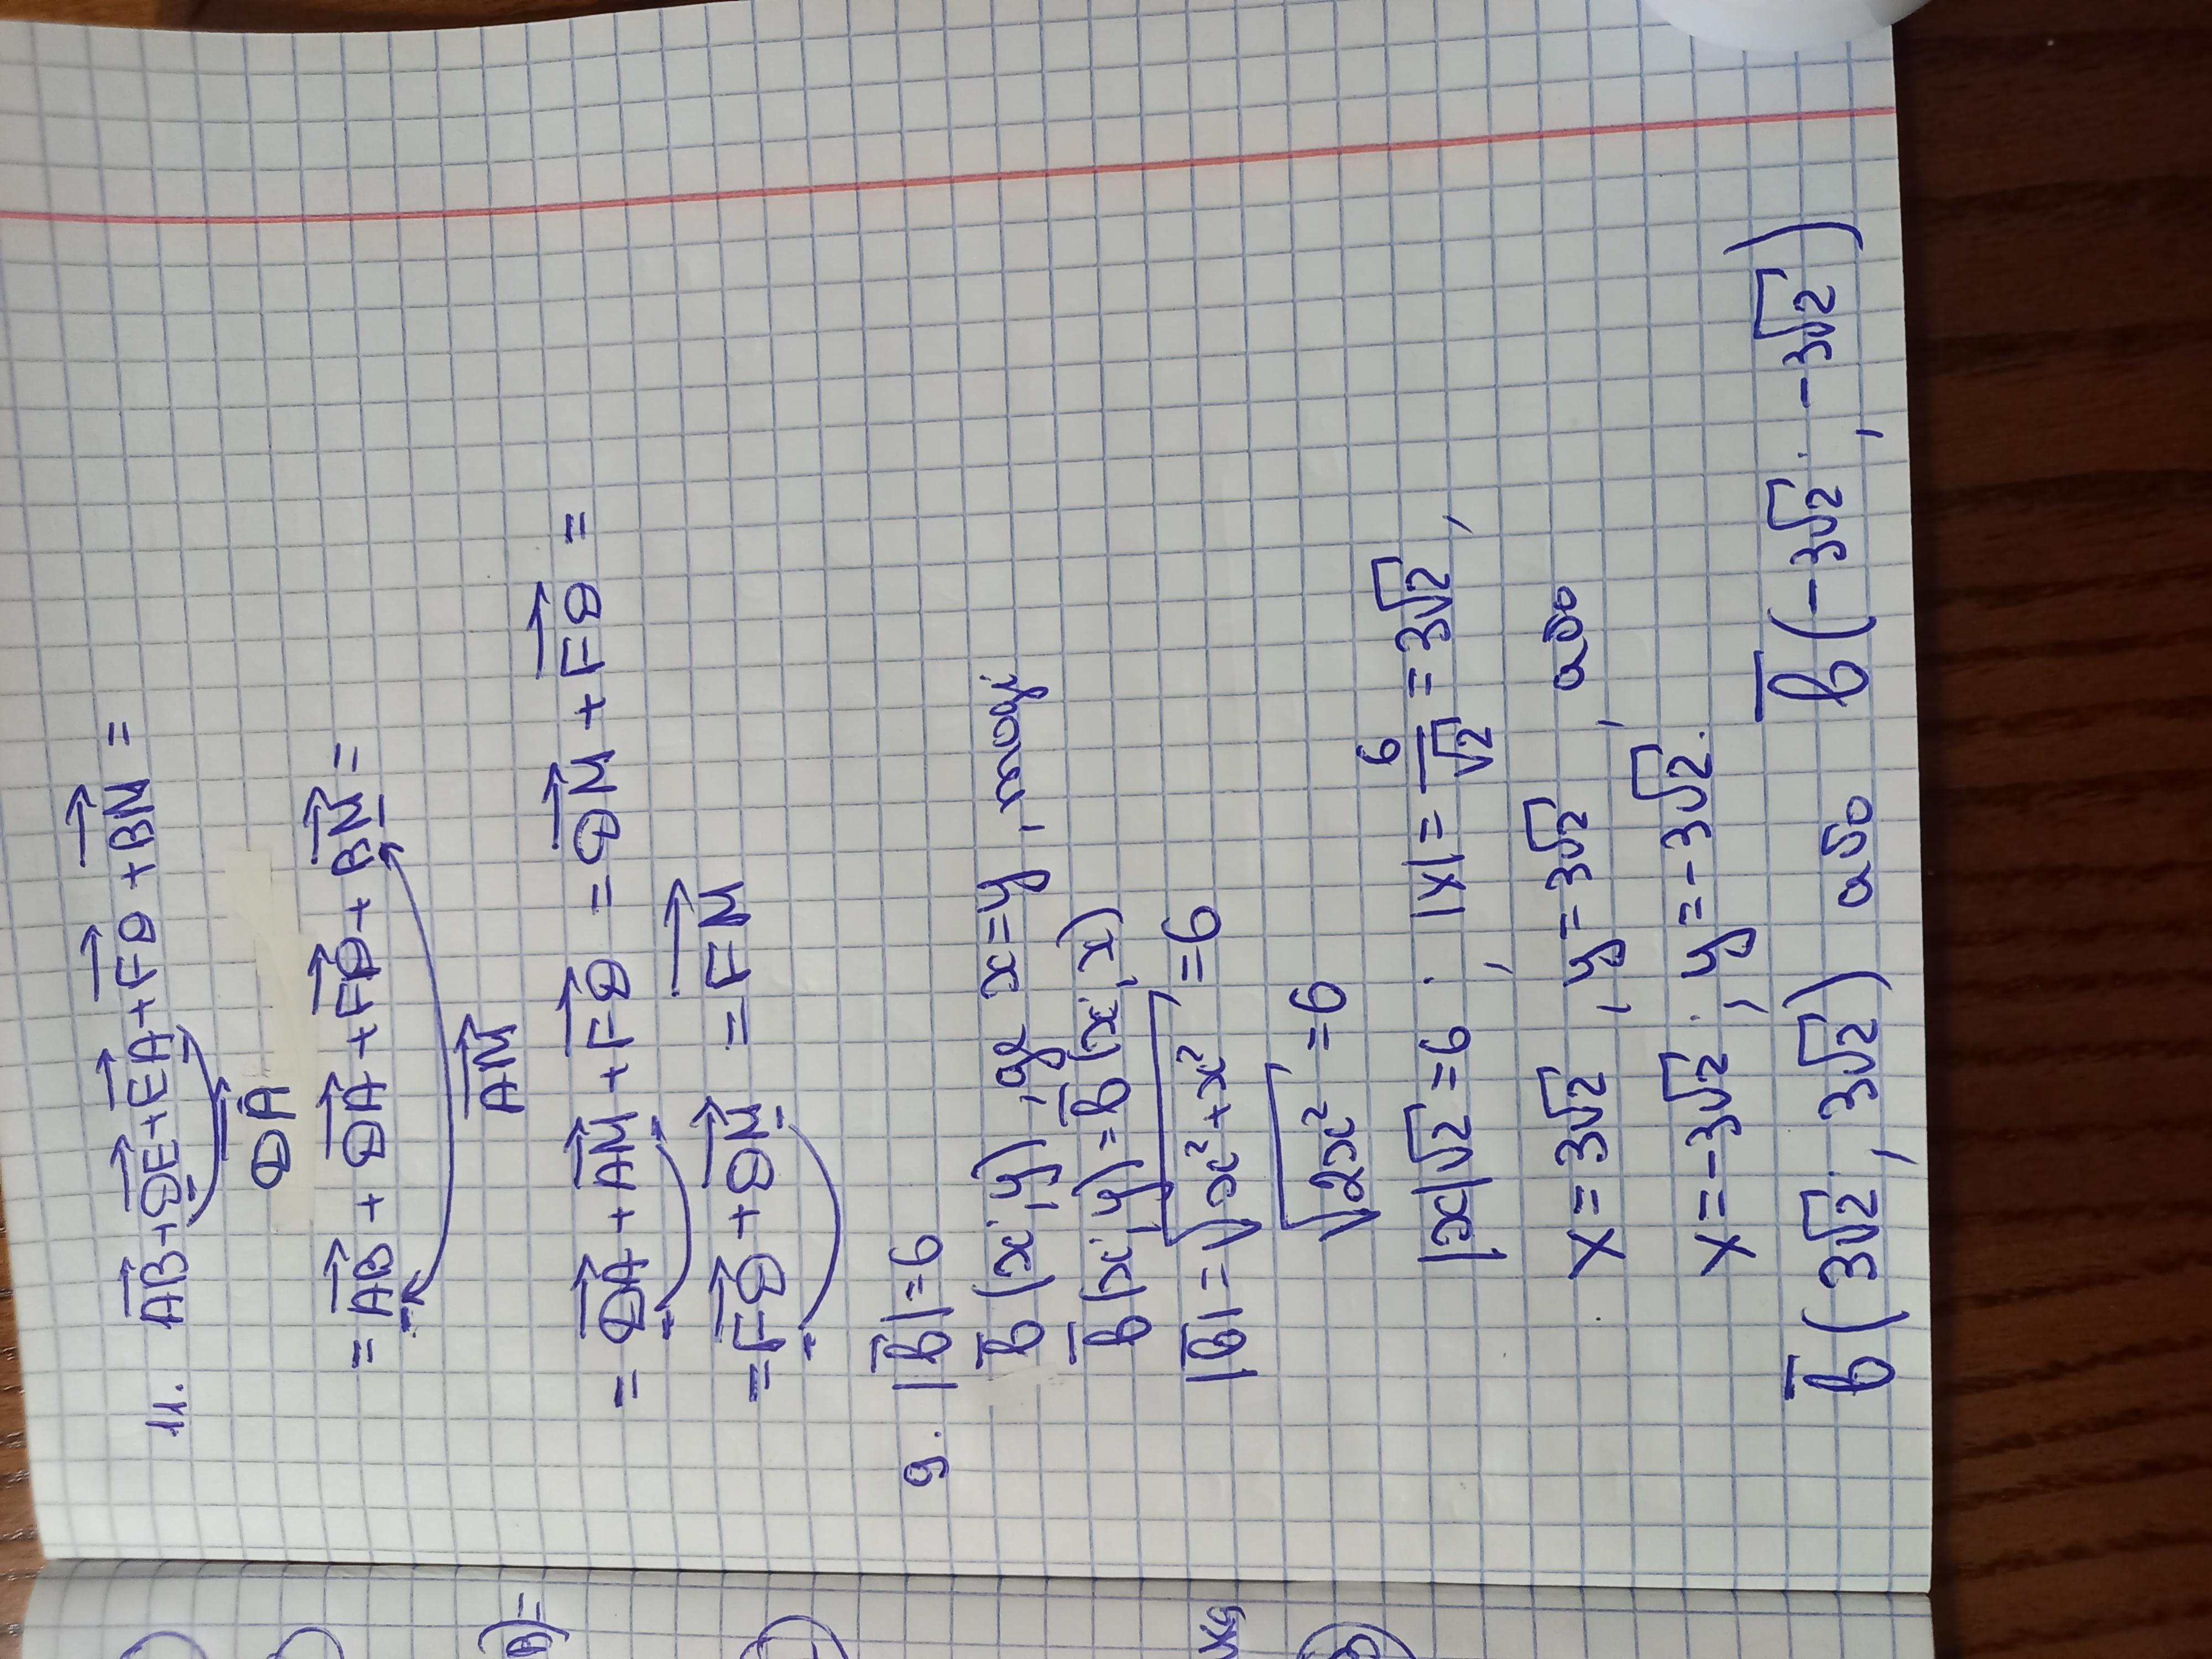 11. AB + DE + EA + FD + BM =
DA
= AB + DA + FD + BM =
AM
= DA + AM + FD = DM + FD =
= FD + DM = FM
9. |b| = 6
b (x; y), де x = y, тоді
b (x; y) = b (x; x)
|b| = √x² + x² = 6
√2x² = 6
|x|√2 = 6 ; |x| = 6/√2 = 3√2,
x = 3√2, y = 3√2, або
x = -3√2; y = -3√2.
b (3√2; 3√2) або b (-3√2; -3√2)
B) =